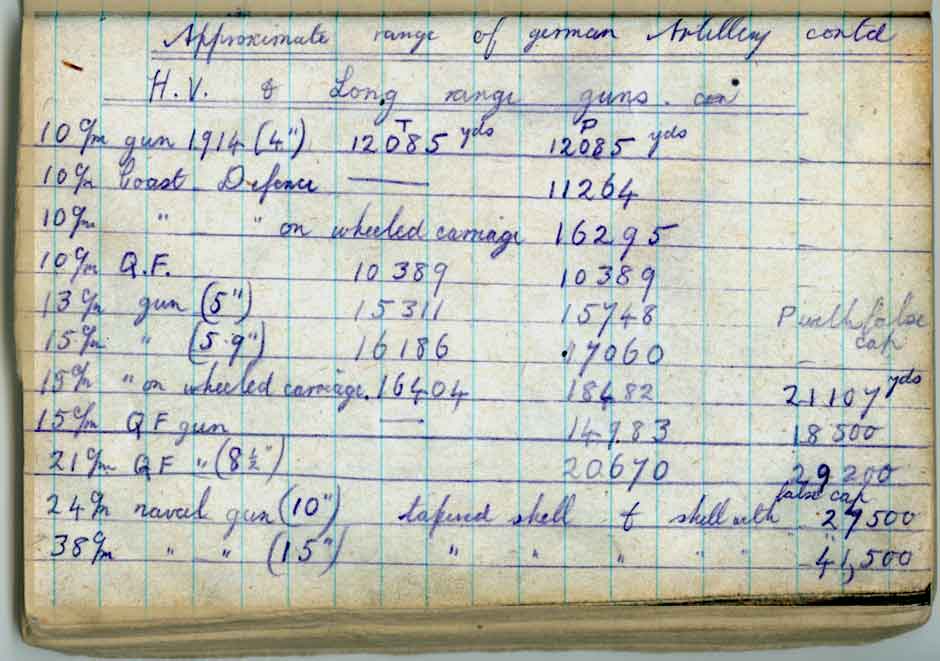 Approximate range of german Artillery contd
H.V. & Long range guns.
T P
10 c/m gun 1914 (4") 12085 yds 12085 yds
10 c/m Coast Defence — 11264
10 c/m " " on wheeled carriage 16295
10 c/m Q.F. 10389 10389
13 c/m gun (5") 15311 15748 P with false cap
15 c/m " (5.9") 16186 17060
15 c/m " on wheeled carriage. 16404 18482 21107 yds
15 c/m QF gun — 14983 18500
21 c/m QF " (8½") 20670 29200
24 c/m naval gun (10") tapered shell & shell with false cap 29500
38 c/m " " (15") " " " " " 41,500